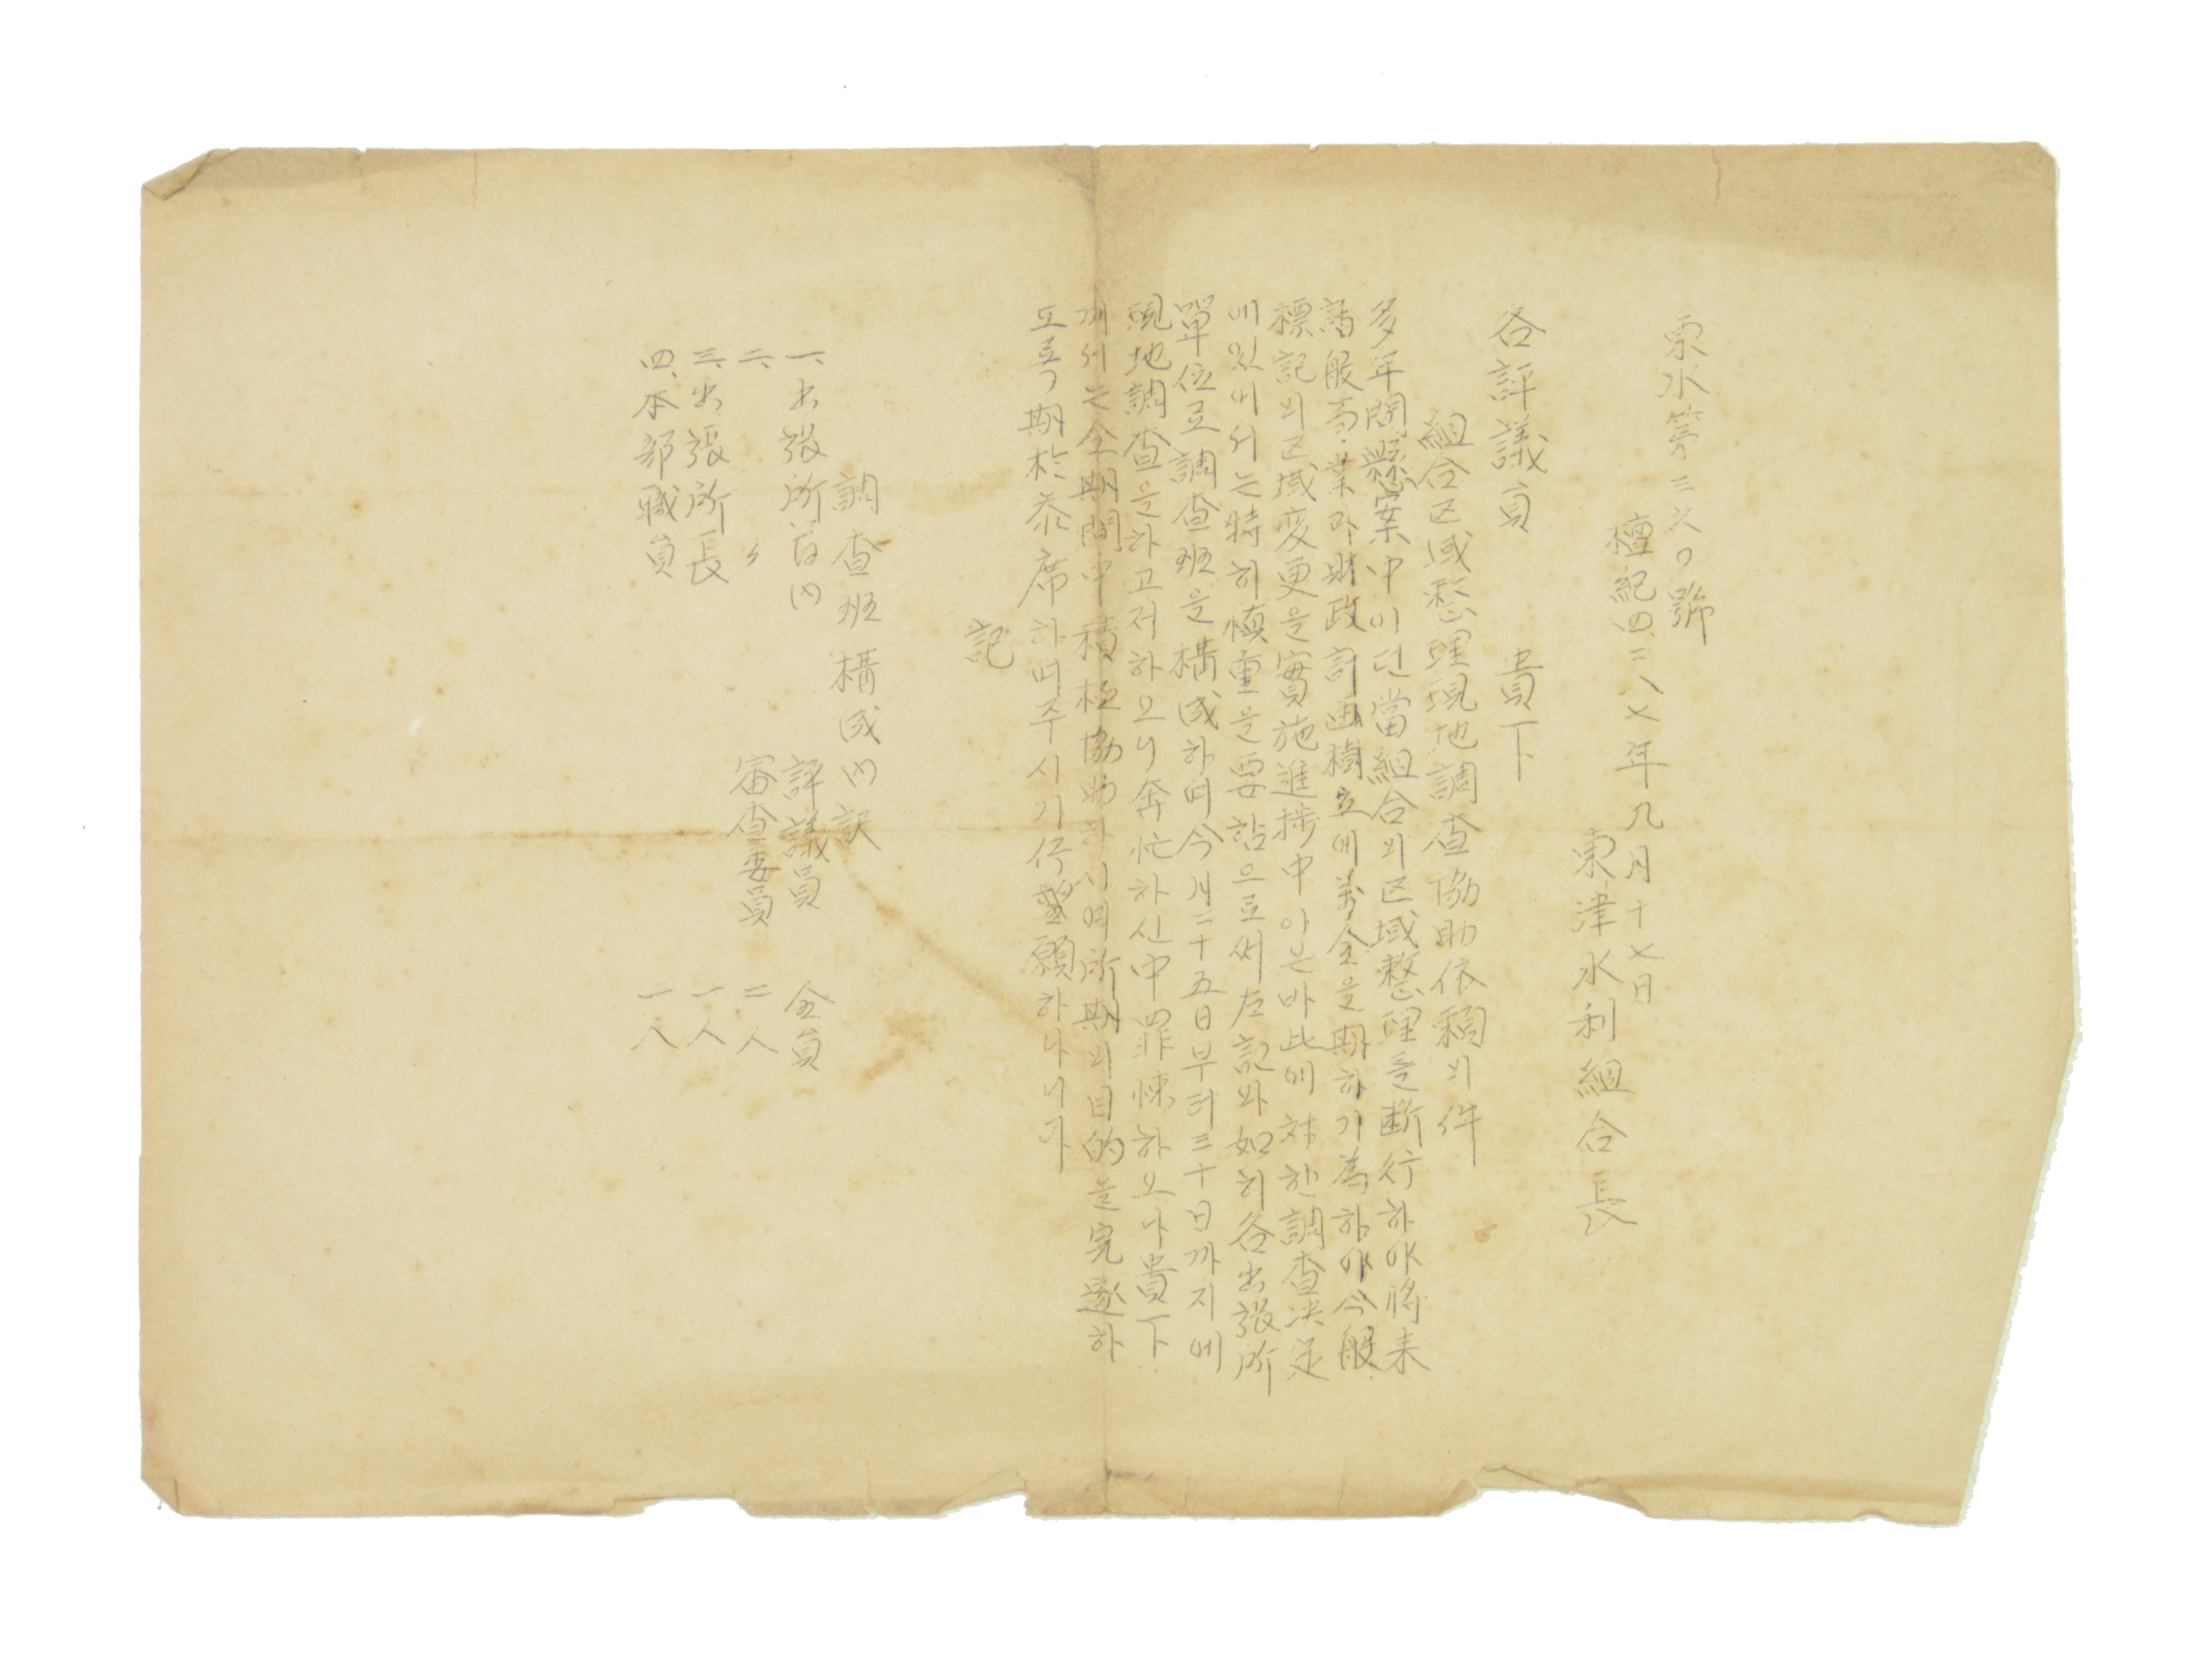 東水第三六〇號
檀紀四二八七年九月十七日
東津水利組合長
各評議員 貴下
組合区域整理現地調査協助依賴의件
多年間懸案中이던當組合의区域整理를断行하야將来
諸般事業과財政計画樹立에萬全을期하기為하야今般
標記의区域変更을實施進捗中이온바此에対한調査决定
에있어서는特히慎重을要함으로써左記와如히各出張所
單位로調査班을構成하며今月二十五日부터三十日까지에
現地調査을하고저하오니奔忙하신中罪悚하오나貴下
께서는全期間中積極協助하시여所期의目的을完遂하
도록期於参席하며주시기仰望願하나니다
記
調査班構成內訳
一、出張所管內 評議員 全員
二、〃 審査委員 二人
三、出張所長 一人
四、本部職員 一人